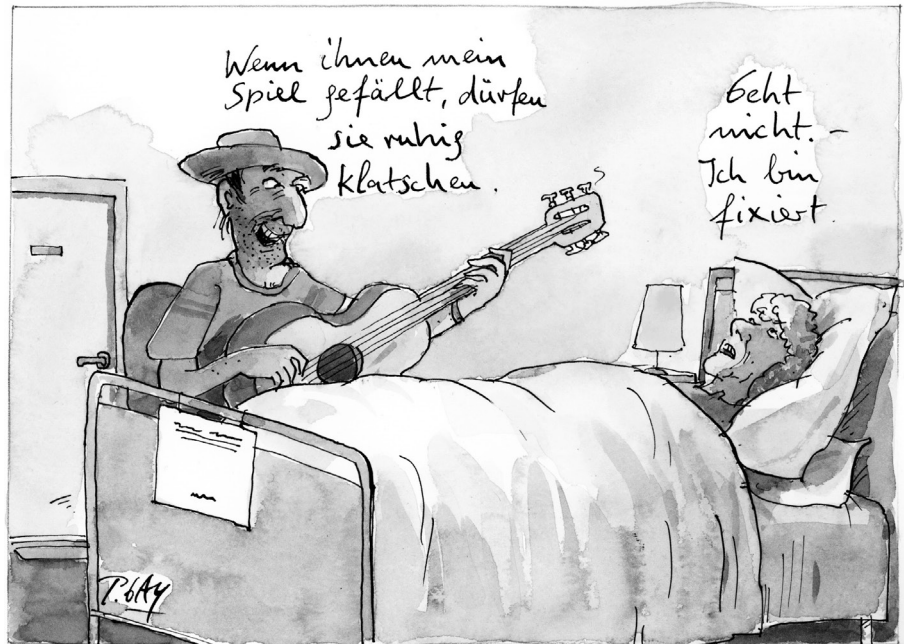 Wenn ihnen mein
Spiel gefällt, dürfen
sie ruhig
klatschen.
Geht
nicht. –
Ich bin
fixiert.
P. bAY